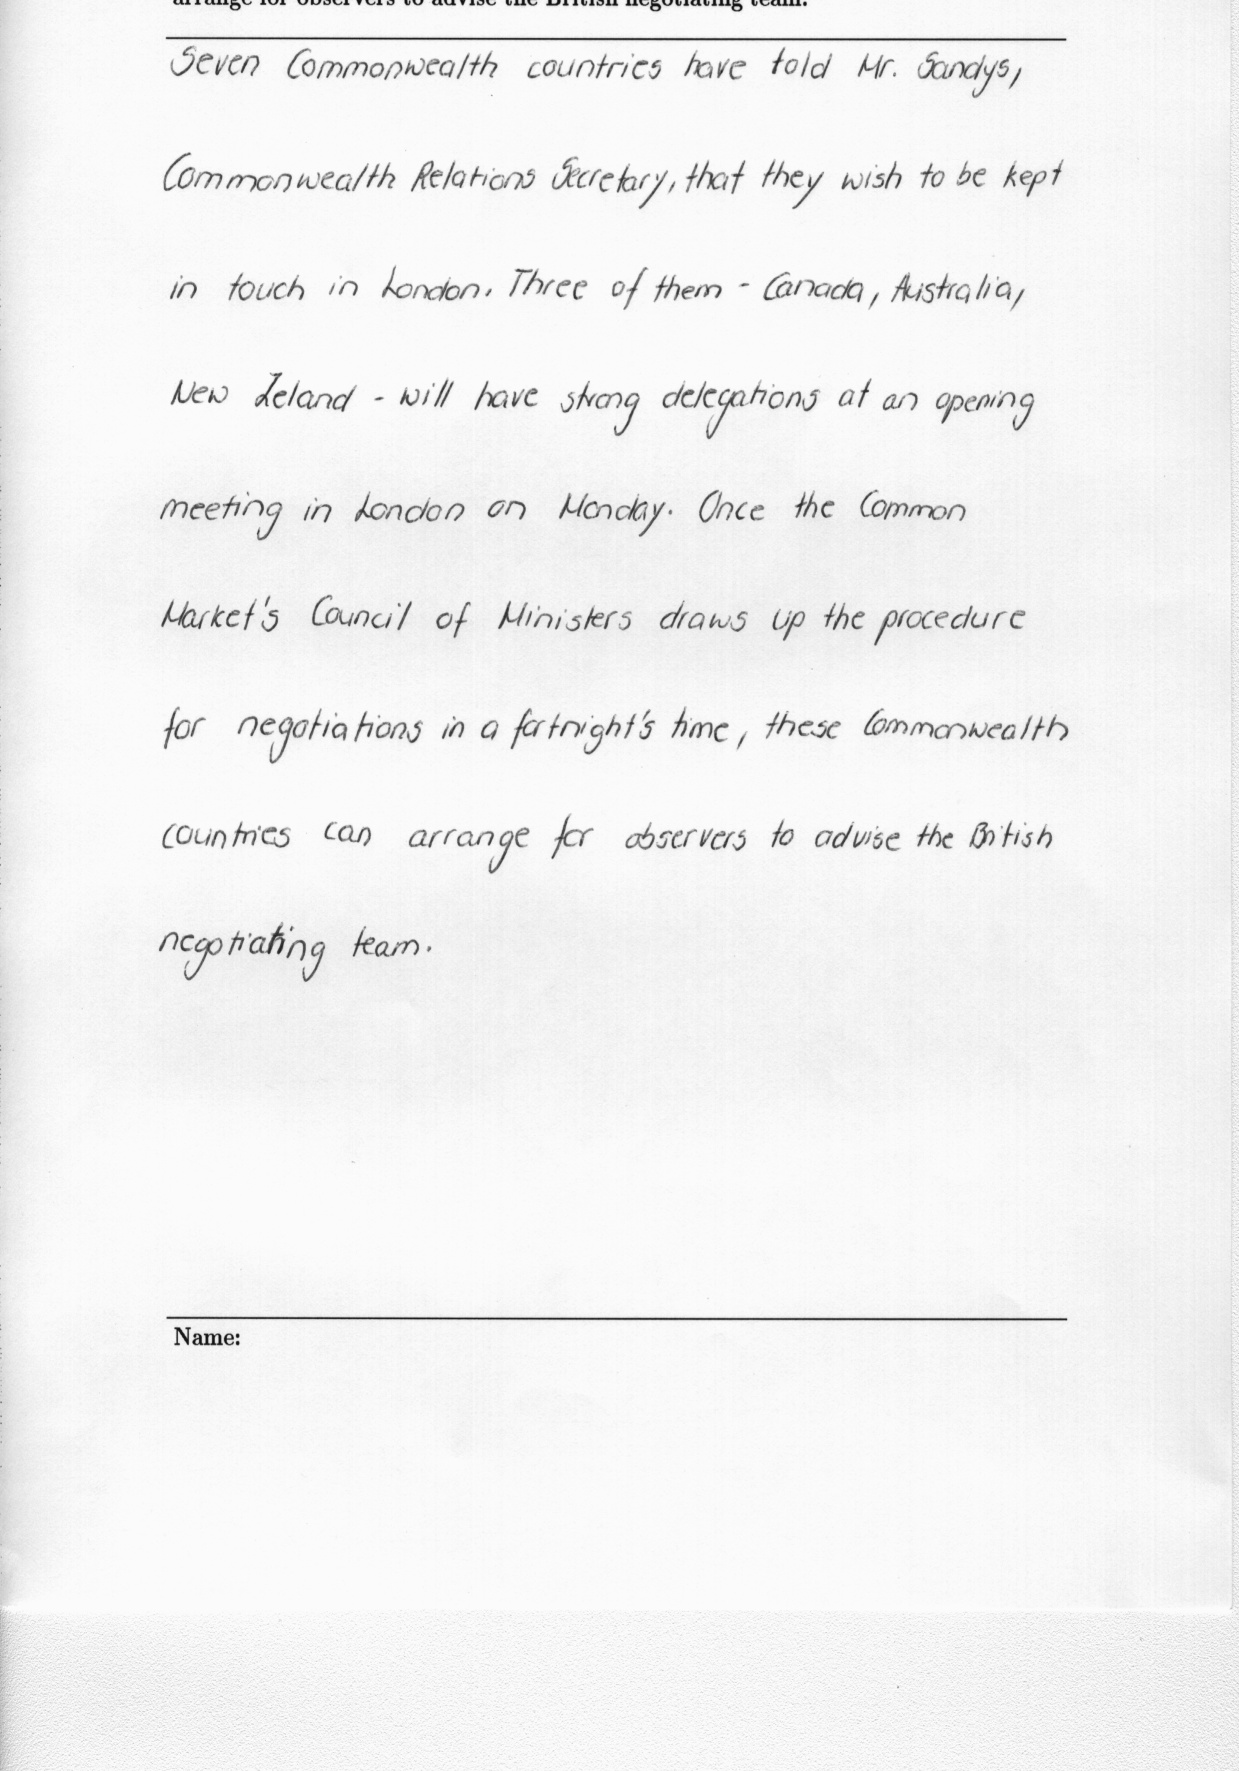 arrange for observers to advise the British negotiating team.
Seven Commonwealth countries have told Mr. Sandys,
Commonwealth Relations Secretary, that they wish to be kept
in touch in London. Three of them - Canada, Australia,
New Zeland - will have strong delegations at an opening
meeting in London on Monday. Once the Common
Market's Council of Ministers draws up the procedure
for negotiations in a fortnight's time, these Commonwealth
countries can arrange for observers to advise the British
negotiating team.
Name: